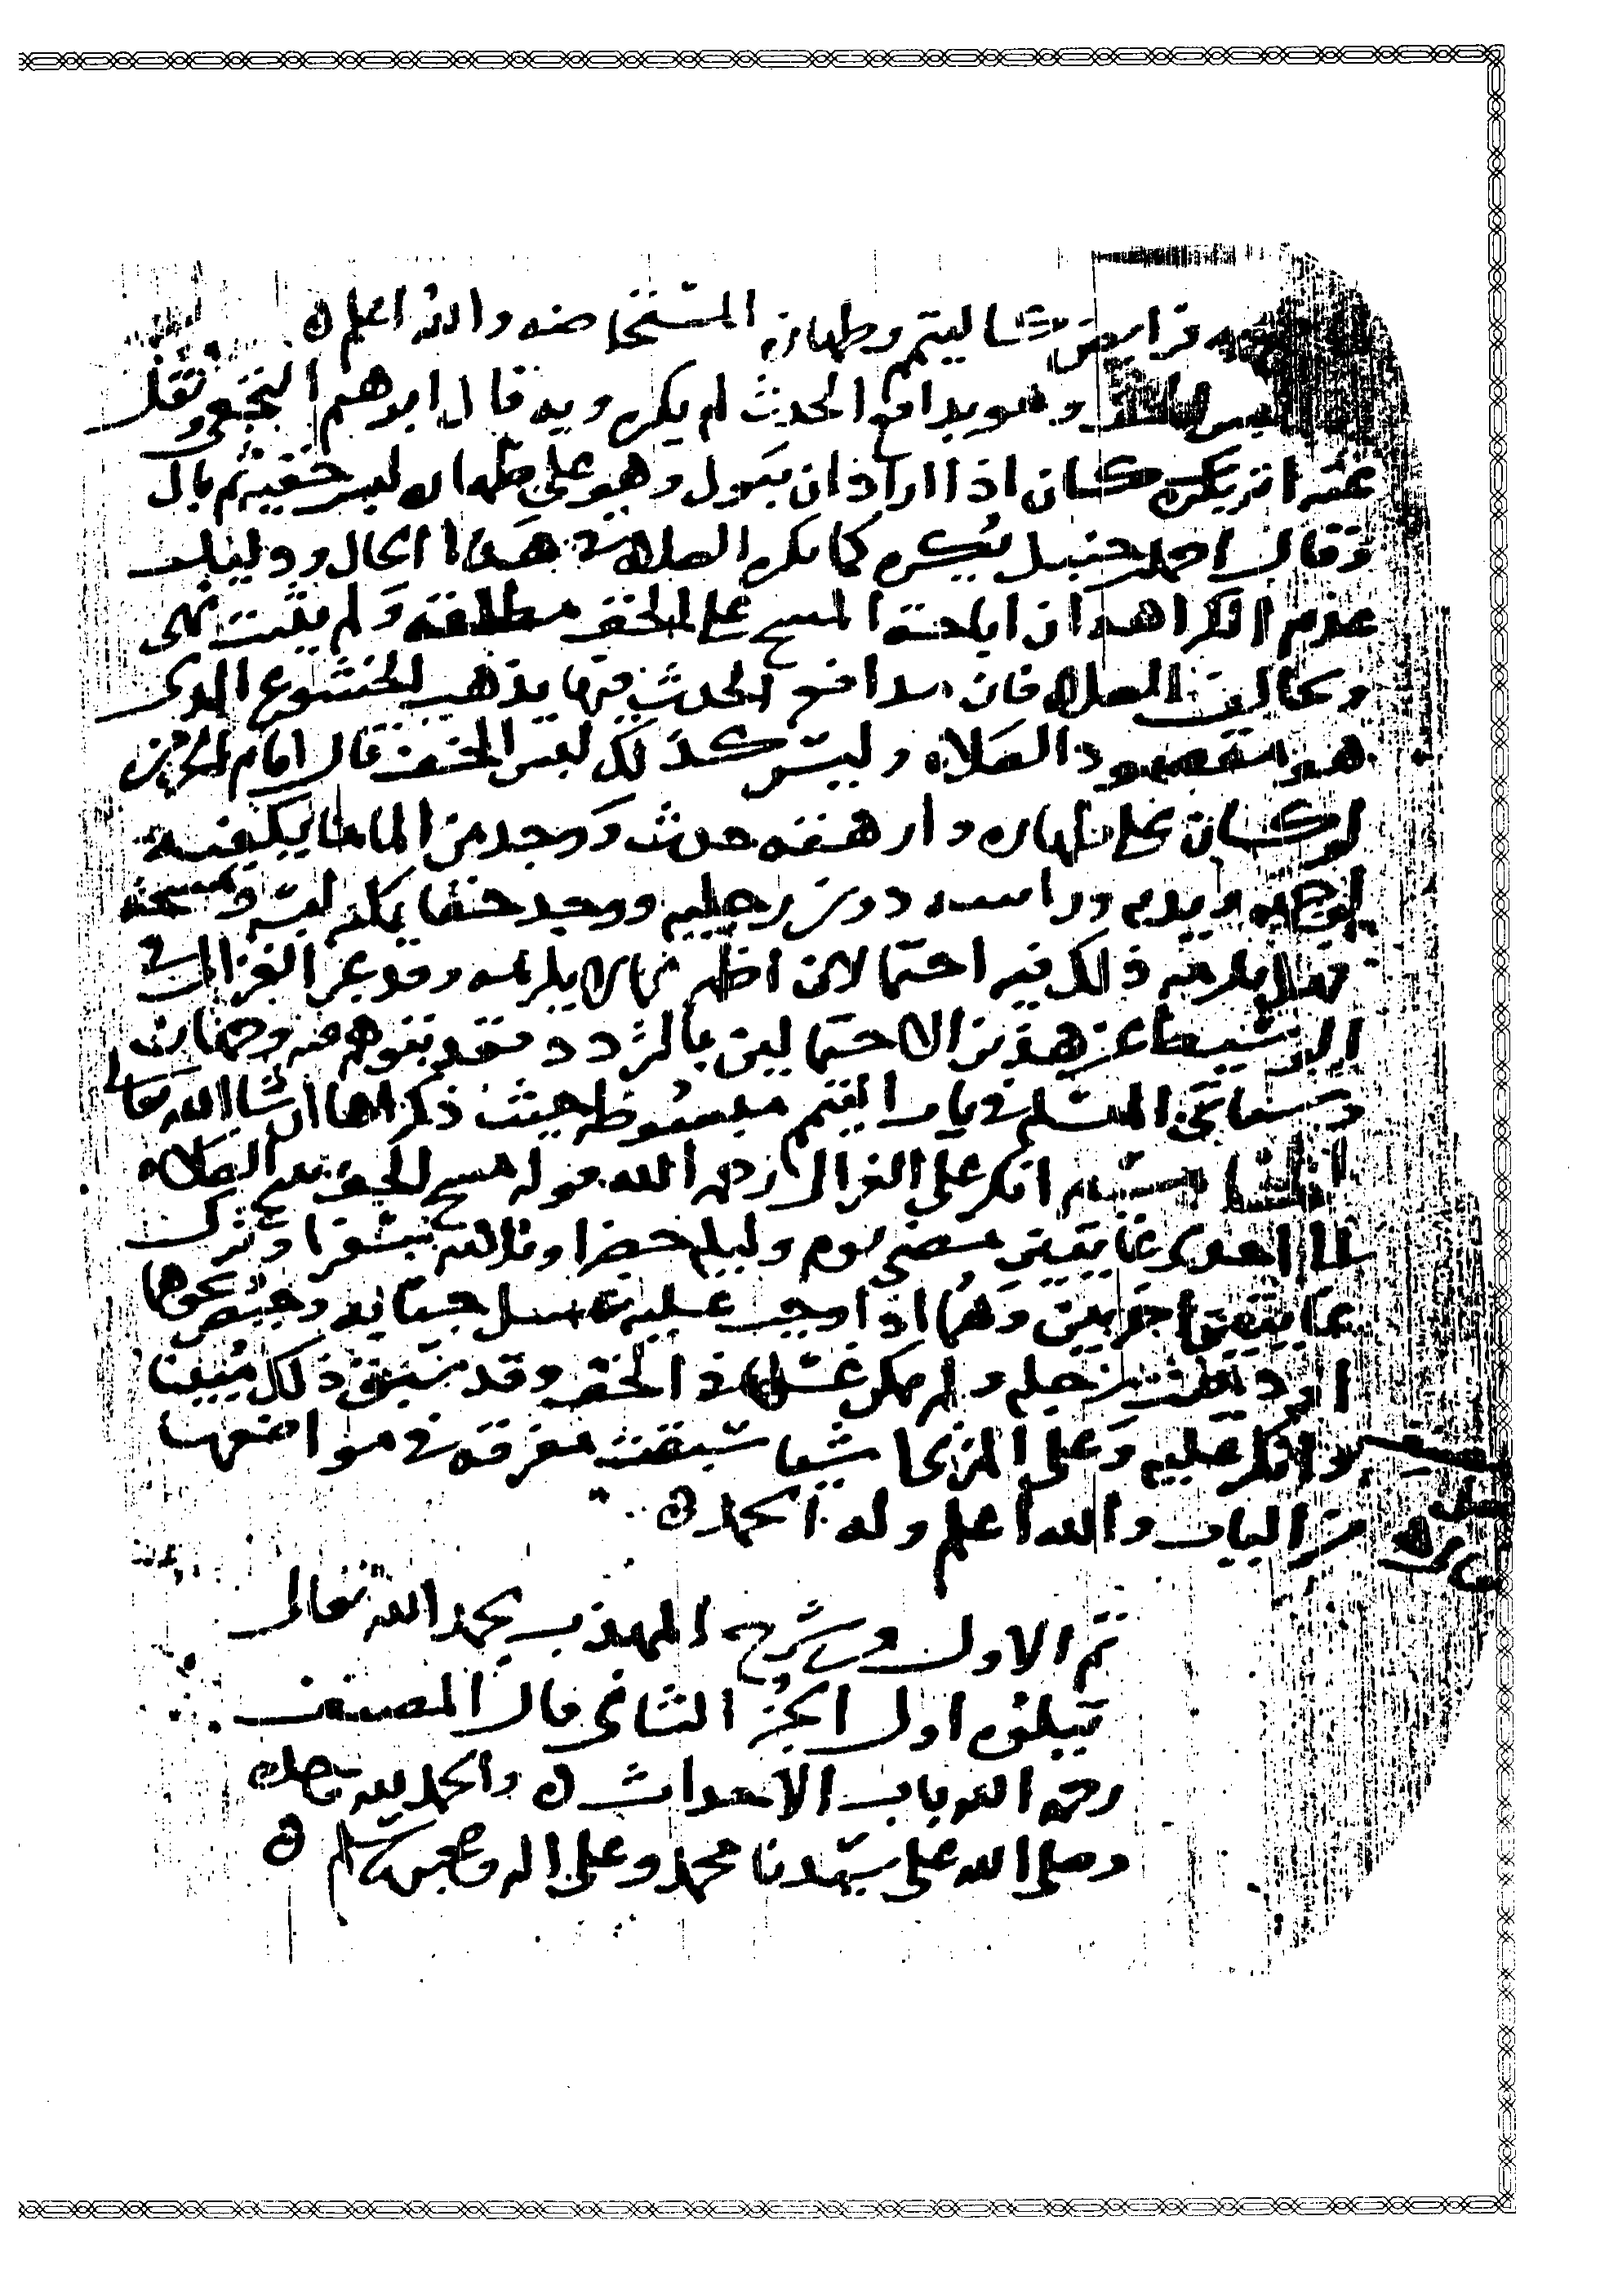 فرايض كالتيمم وطهاره المستحاضه والله اعلم ه
لبس الخف وهو يدافع الحدث لم يكره وبه قال ابرهيم النخعي ونقل
عنه انه كان اذا اراد ان يبول وهو على طهاره لبس خفيه ثم بال
وقال احمد بن حنبل يكره كما يكره الصلاه في هذا الحال ودليل
عدم الكراهه ان اباحة المسح على الخف مطلقه ولم يثبت نهي
وتخالف الصلاه فان مدافع الحدث فيها يذهب الخشوع الذي
هو مقصود الصلاه وليس كذلك لبس الخف قال امام الحرمين
لو كان على طهاره وارهقه حدث ووجد من الما ما يكفيه
لوجهه ويديه وراسه دون رجليه ووجد خفا يمكنه لبسه ومسحه
فهل يلزمه ذلك فيه احتمالان اظهرهما لا يلزمه وقد عبر الغزالي في
الوسيط عن هذين الاحتمالين بالتردد فقد يتوهم منه وجهان
وستاتي المسله في باب التيمم مبسوطه حيث ذكرها ان شا الله تعالى
انكر على الغزالي رحمه الله قوله مسح الخف يبيح الصلاه
الى احدى غايتين مضي يوم وليله حضرا وثلاثه سفرا وترك
غايتين اخريين وهما اذا وجب عليه غسل جنابه وحيض ونحوها
او دميت رجله ولم يمكن غسلها في الخف وقد سبق ذلك مبينا
وانكر عليه وعلى المزني اشيا سبقت مفرقه في مواضعها
من الباب والله اعلم وله الحمد ه
تم الاول من شرح المهذب بحمد الله تعالى
يتلوه اول الجز الثاني قال المصنف
رحمه الله باب الاحداث ه والحمد لله
وصلى الله على سيدنا محمد وعلى اله وصحبه وسلم ه